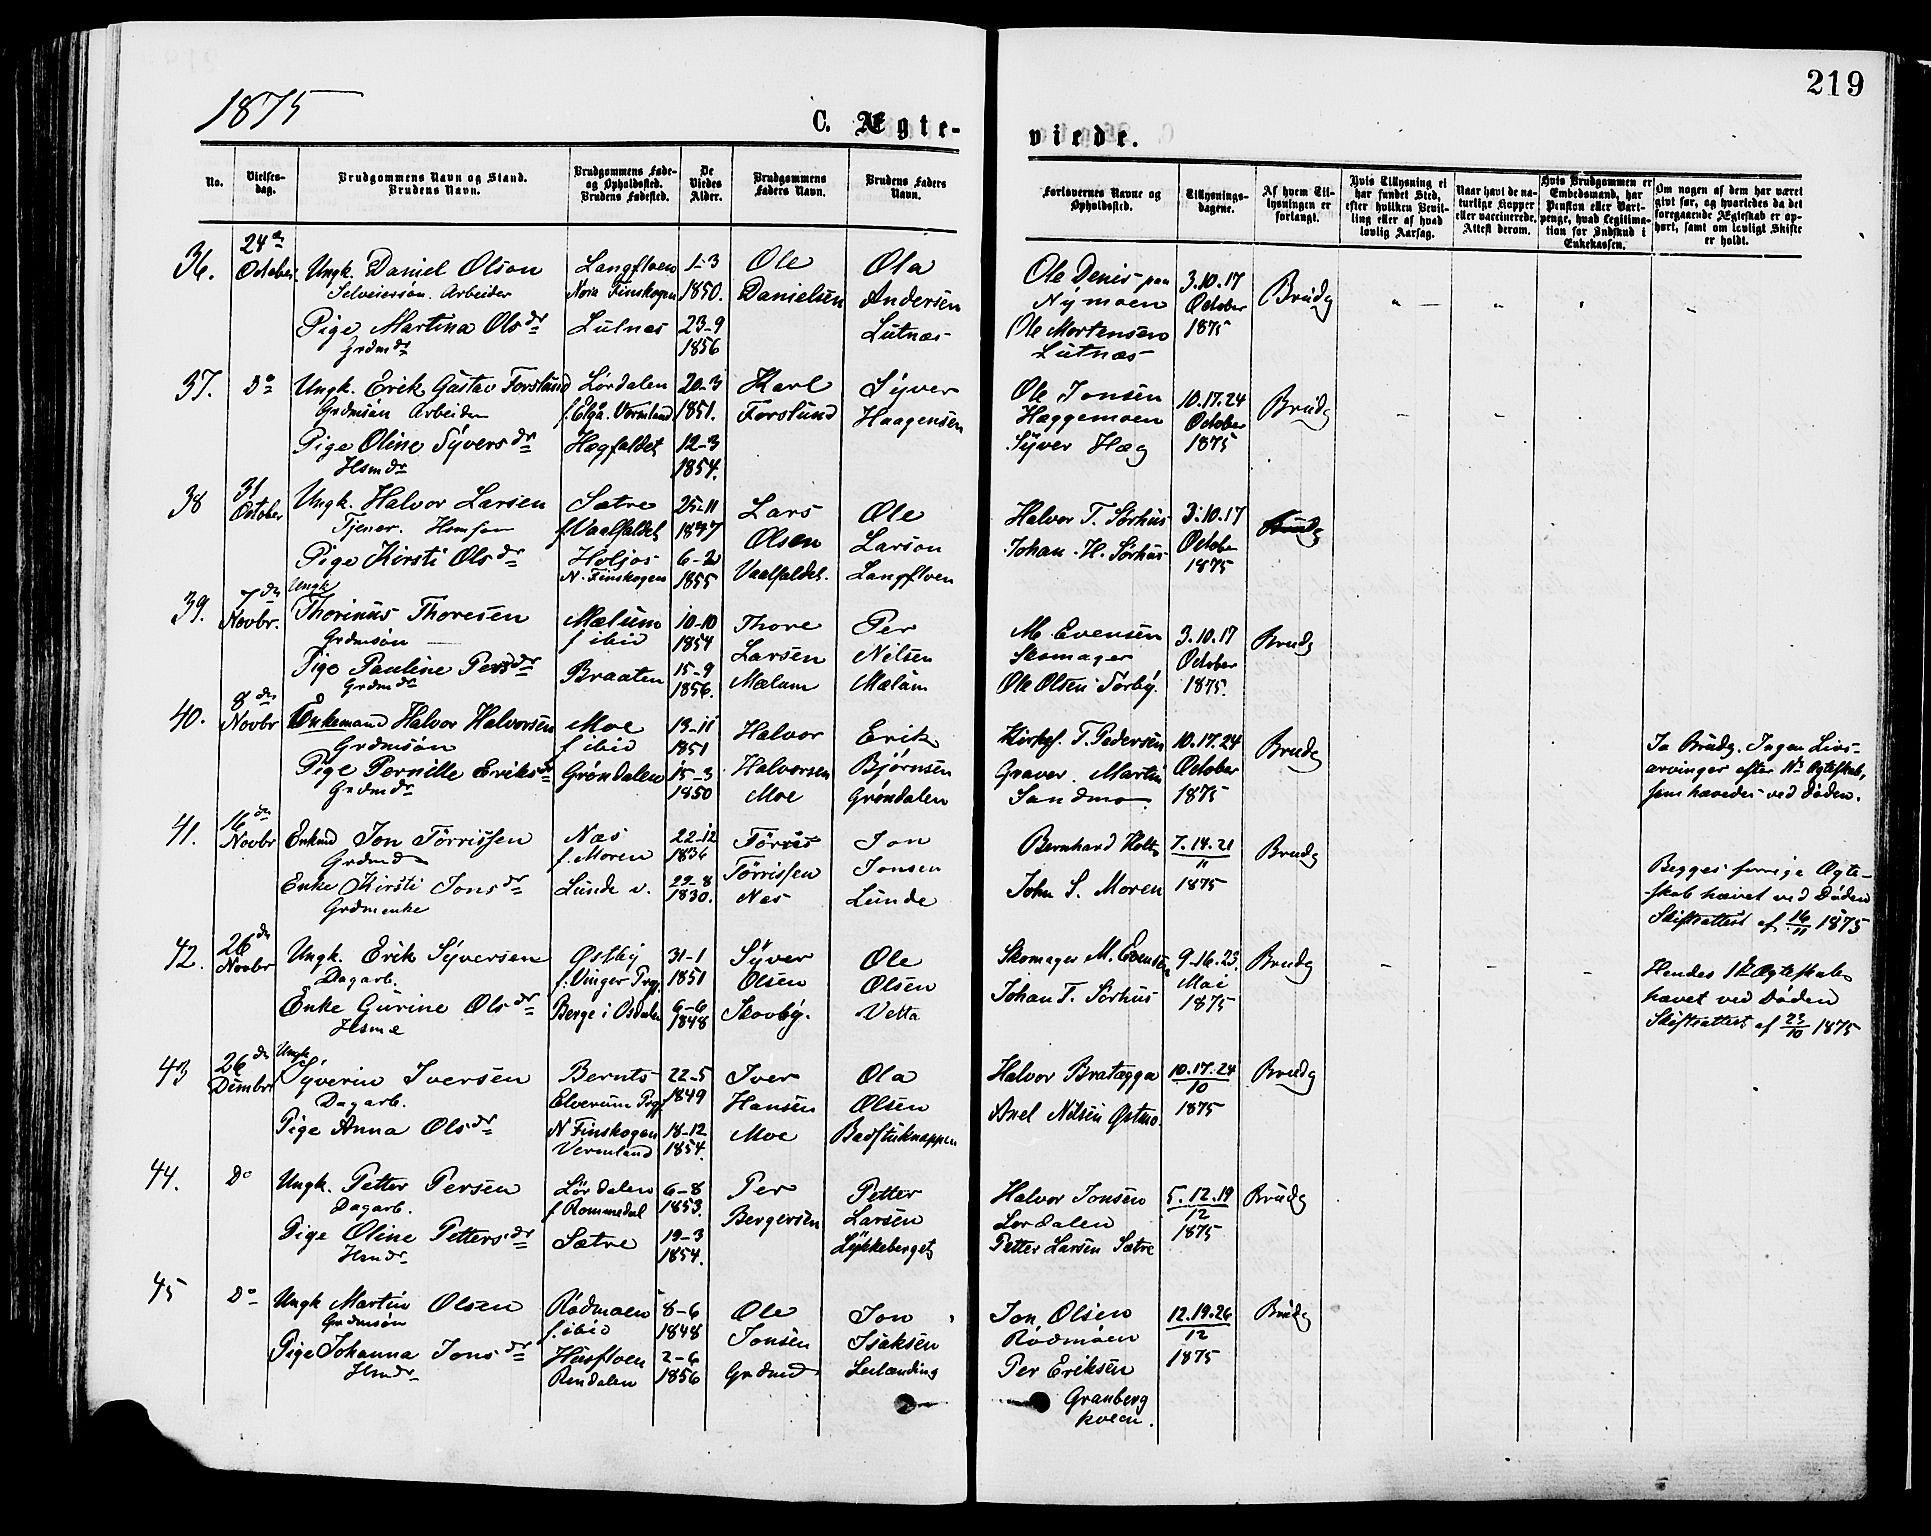 219
1875
C. Ægte-
viede.
No.
Vielses-
dag.
Brudgommens Navn og Stand.
Brudens Navn.
Brudgommens Føde-
og Opholdsted.
Brudens Fødested.
De
Viedes
Alder.
Brudgommens
Faders Navn.
Brudens Faders
Navn.
Forlovernes Navne og
Opholdsted.
Tillysnings-
dagene.
Af hvem Til-
lysningen er
forlangt.
Hvis Tillysning ei
har fundet Sted,
efter hvilken Bevil-
ling eller af hvad
lovlig Aarsag.
Naar havt de na-
turlige Kopper
eller vaccinerede.
Attest derom.
Hvis Brudgommen er
Embedsmand, har
Pension eller Vart-
penge, hvad Legitima-
tion for Indskud i
Enkekassen.
Om nogen af dem har været
gift før, og hvorledes da det
foregaaende Ægteskab er op-
hørt, samt om lovligt Skifte
er holdt.
36.
24de
October.
Ungk. Daniel Olson
Selveiersøn. Arbeider
Pige Martina Olsdr
Grdmdr
Langfloen
Nora Finskogen
Lutnæs
1-3
1850.
23-9
1856
Ole
Danielsen
Ola
Andersen
Lutnæs
Ole Denis paa
Nymoen
Ole Mortensen
Lutnæs
3.10.17
October
1875
Brudg
37.
Do
Ungk. Erik Gustav Forslund
Grdmsøn Arbeider
Pige Oline Syversdr
Hsmdr
Lørdalen
f. Elgå. Vermland
Hægfaldet
20-3
1851.
12-3
1854.
Karl
Forslund
Syver
Haagensen
Ole Jonsen
Haggemoen
Syver Hæg
10.17.24
October
1875
Brudg
38
31
October
Ungk. Halvor Larsen
Tjener. Hsmsøn
Pige Kirsti Olsdr
Sætre
f. Vaalfaldet
Holjøs
N. Finskogen
25-11
1847
6-2
1855
Lars
Olsen
Vaalfaldet.
Ole
Larson
Langfloen
Halvor T. Sørhus
Johan H. Sørhus
3.10.17
October
1875
Brudg
39.
7de
Novbr.
Ungk
Thorinus Thoresen
Grdmsøn
Pige Pauline Persdr
Grdmdr
Mælum
f. ibid
Braaten
10-10
1854
15-9
1856.
Thore
Larsen
Mælum
Per
Nilsen
Mælum
M. Evensen
Skomager
Ole Olsen Sørby.
3.10.17
October
1875.
Brudg
40.
8de
Novbr
Enkemand Halvor Halvorsen
Grdmsøn
Pige Pernille Eriksdr
Grdmdr
Moe
f. ibid
Grøndalen
13-11
1851
15-3
1850
Halvor
Halvorsen
Moe
Erik
Bjørnsen
Grøndalen
Kirkes. T. Pedersen
Graver. Martin
Sandmo
10.17.24
October
1875
Brudg
Ja Brudg. Ingen Livs-
arvinger efter 1te Ægteskab,
som hævedes ved Døden.
41.
16de
Novbr
Enkmd Jon Tørrissen
Grdmd
Enke Kirsti Jonsdr
Grdmenke
Næs
f. Moren
Lunde v.
22-12
1836
29-8
1830.
Tørris
Tørrissen
Næs
Jon
Jonsen
Lunde
Bernhard Holt
John S. Moren
7.14.21
11
1875
Brudg
Begges forrige Ægte-
skab hævet ved Døden
Skifteattest af 16/11 1875
42.
26de
Novbr
Ungk. Erik Syversen
Dagarb.
Enke Gurine Olsdr
Hsme
Østby
f. Vinger Prg.
Berge i Osdalen
31-1
1851
6-6
1848
Syver
Olsen
Skovby.
Ole
Olsen
Vetta
Skomager M. Evensen
Johan T. Sørhus
9-16.23.
Mai
1875
Brudg
Hendes 1te Ægteskab
hævet ved Døden
Skifteattest af 23/10 1875
43
26de
Dcmbr
Ungk
Syverin Iversen
Dagarb.
Pige Anna Olsdr
Bernts
Elverum Prg.
N Finskogen
Vermland
22-5
1849
18-12
1854.
Iver
Hansen
Moe
Ola
Olsen
Badstuknappen
Halvor Bratægga
Axel Nilsen Østmo.
10.17.24
10
1875
Brudg
44.
Do
Ungk. Petter Persen
Dagarb.
Pige Oline Pettersdr
Hsmdr
Lørdalen
f. Rommedal
Sætre
6-8
1853.
19-3
1854.
Per
Bergersen
Petter
Larsen
Lykkeberget
Halvor Jonsen
Lørdalen
Petter Larsen Sætre
5.12.19
12
1875
Brudg
45
Do
Ungk Martin Olsen
Grdmsøn
Pige Johanna Jonsdr
Hsmdr
Rødmoen
f. ibid
Husfloen
Rendalen
8-6
1848
2-6
1856
Ole
Jonsen
Grdmd
Jon
Isaksen
Leilænding
Jon Olsen
Rødmoen
Per Eriksen
Granberg
kveen.
12.19.26
12
1875
Brudg